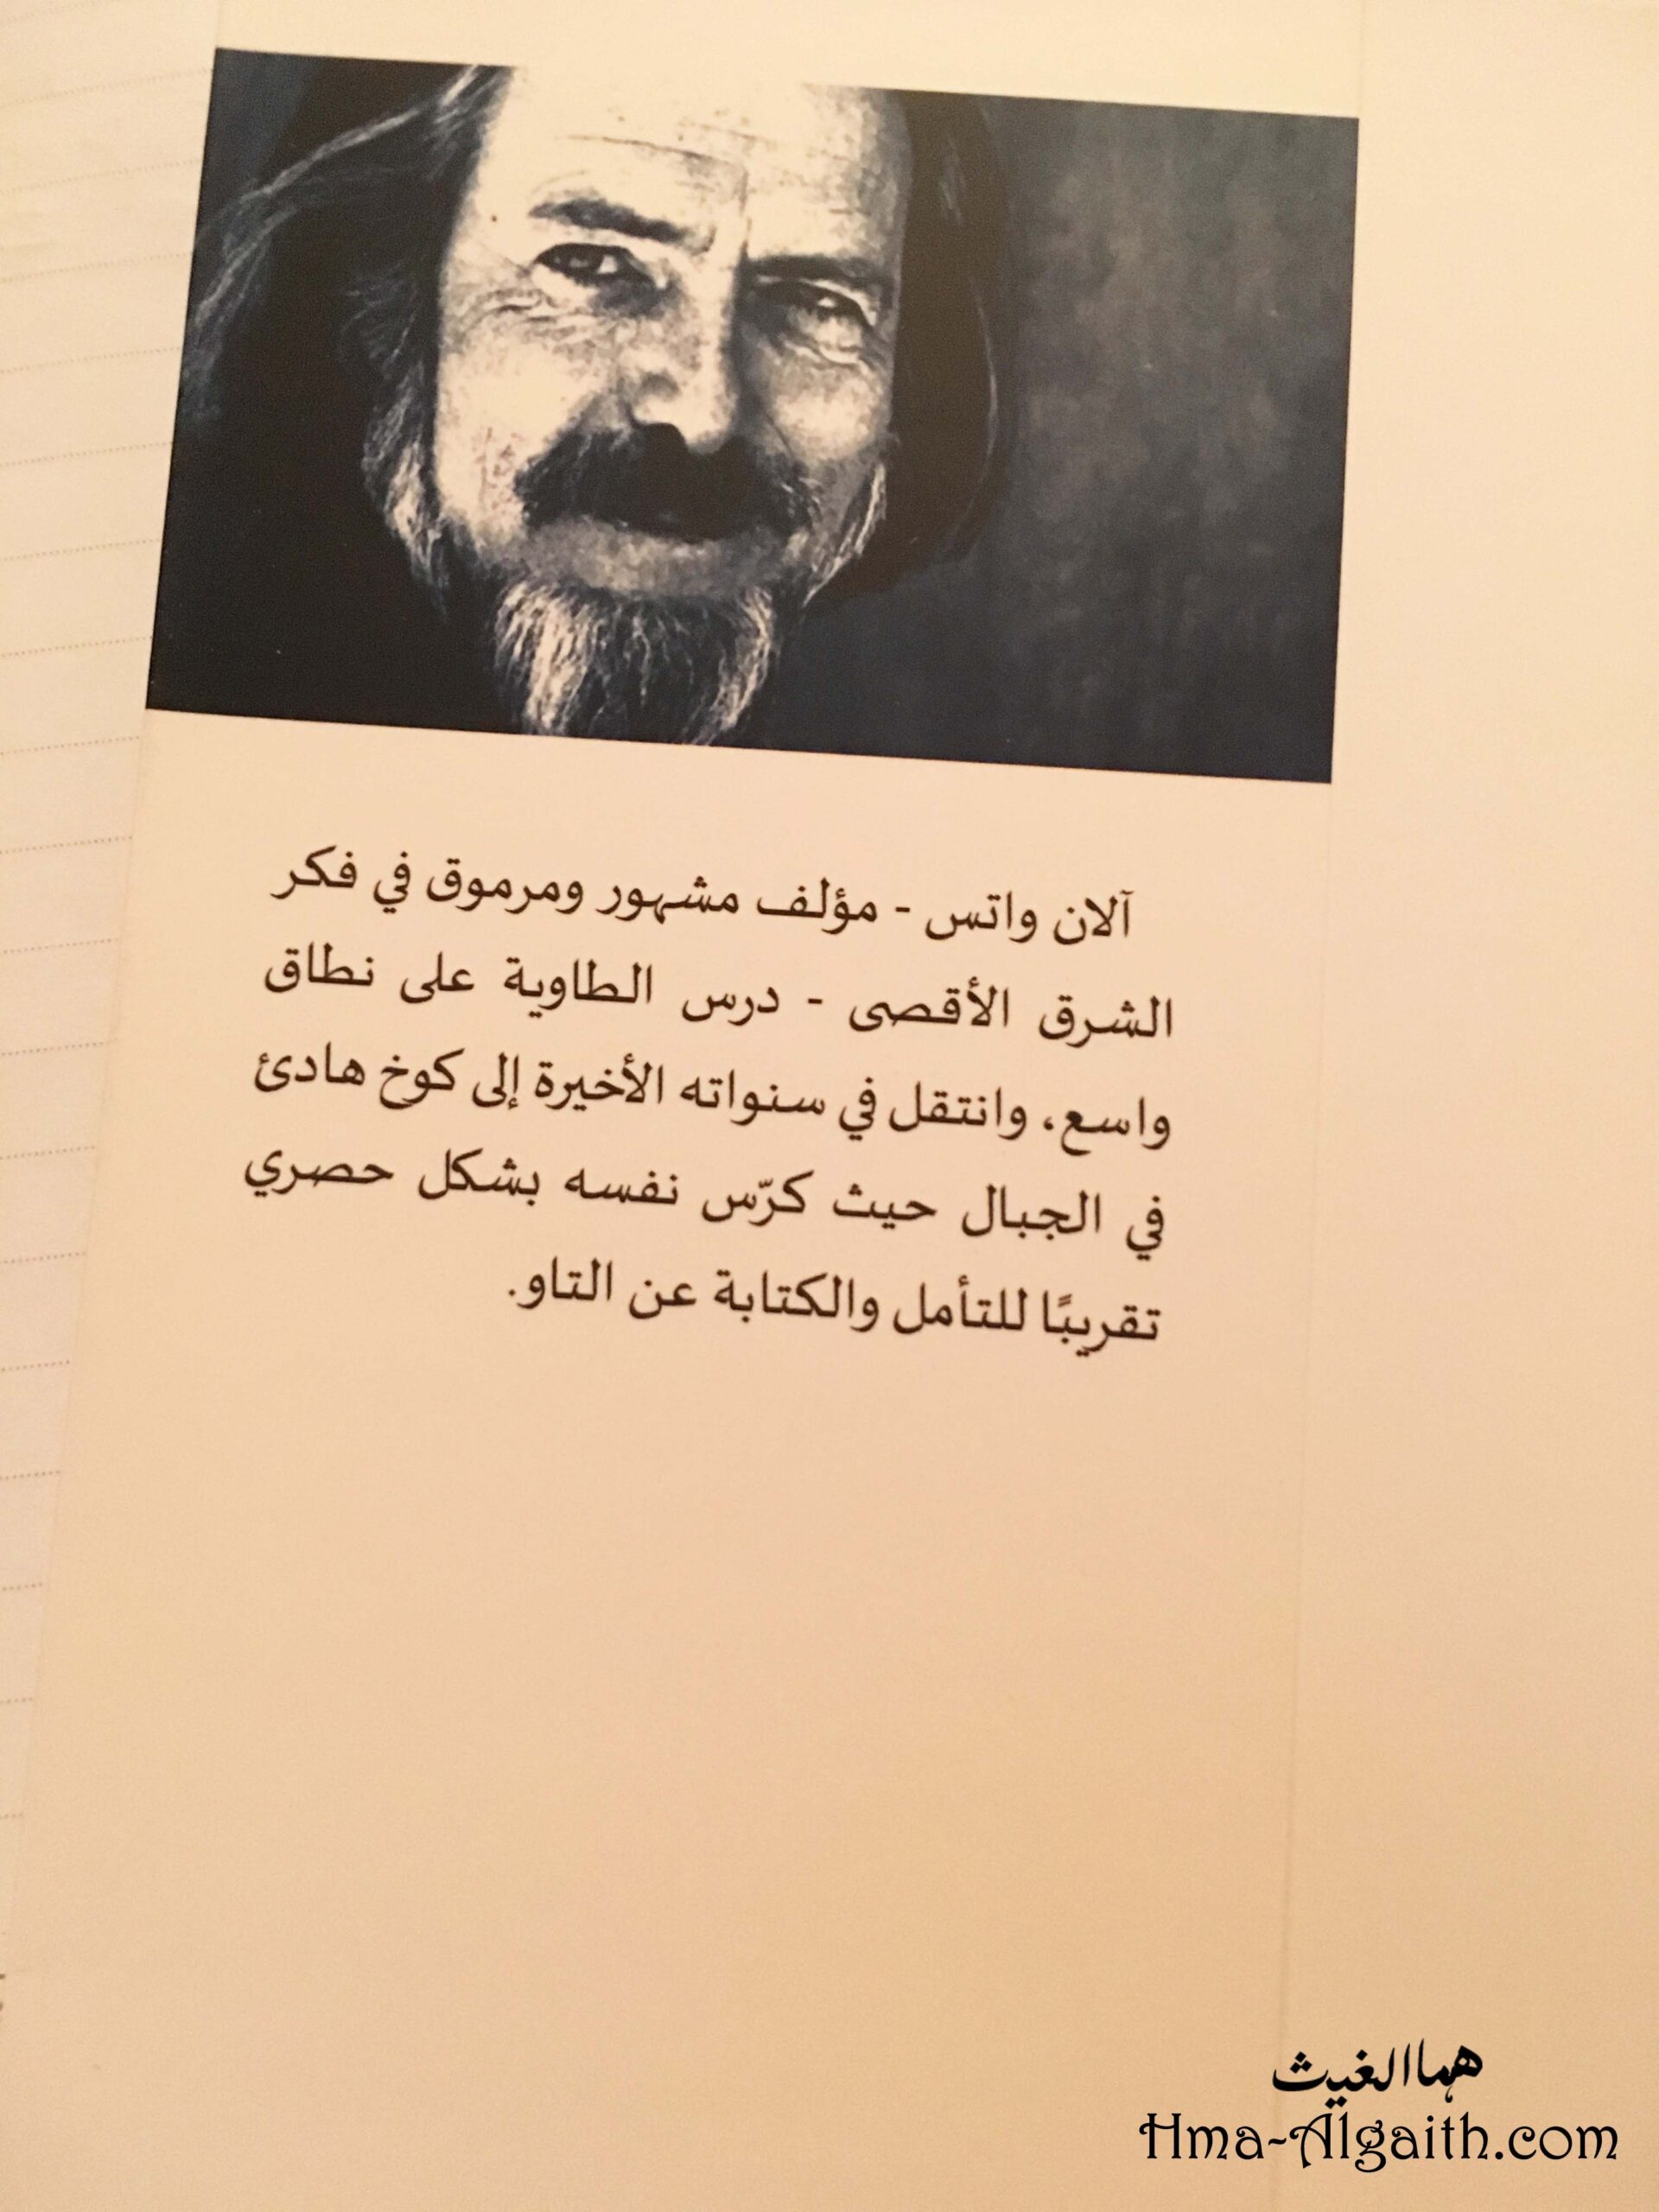 آلان واتس - مؤلف مشهور ومرموق في فكر
الشرق الأقصى - درس الطاوية على نطاق
واسع، وانتقل في سنواته الأخيرة إلى كوخ هادئ
في الجبال حيث كرّس نفسه بشكل حصري
تقريبًا للتأمل والكتابة عن التاو.
هماالغيث
Hma-Algaith.com